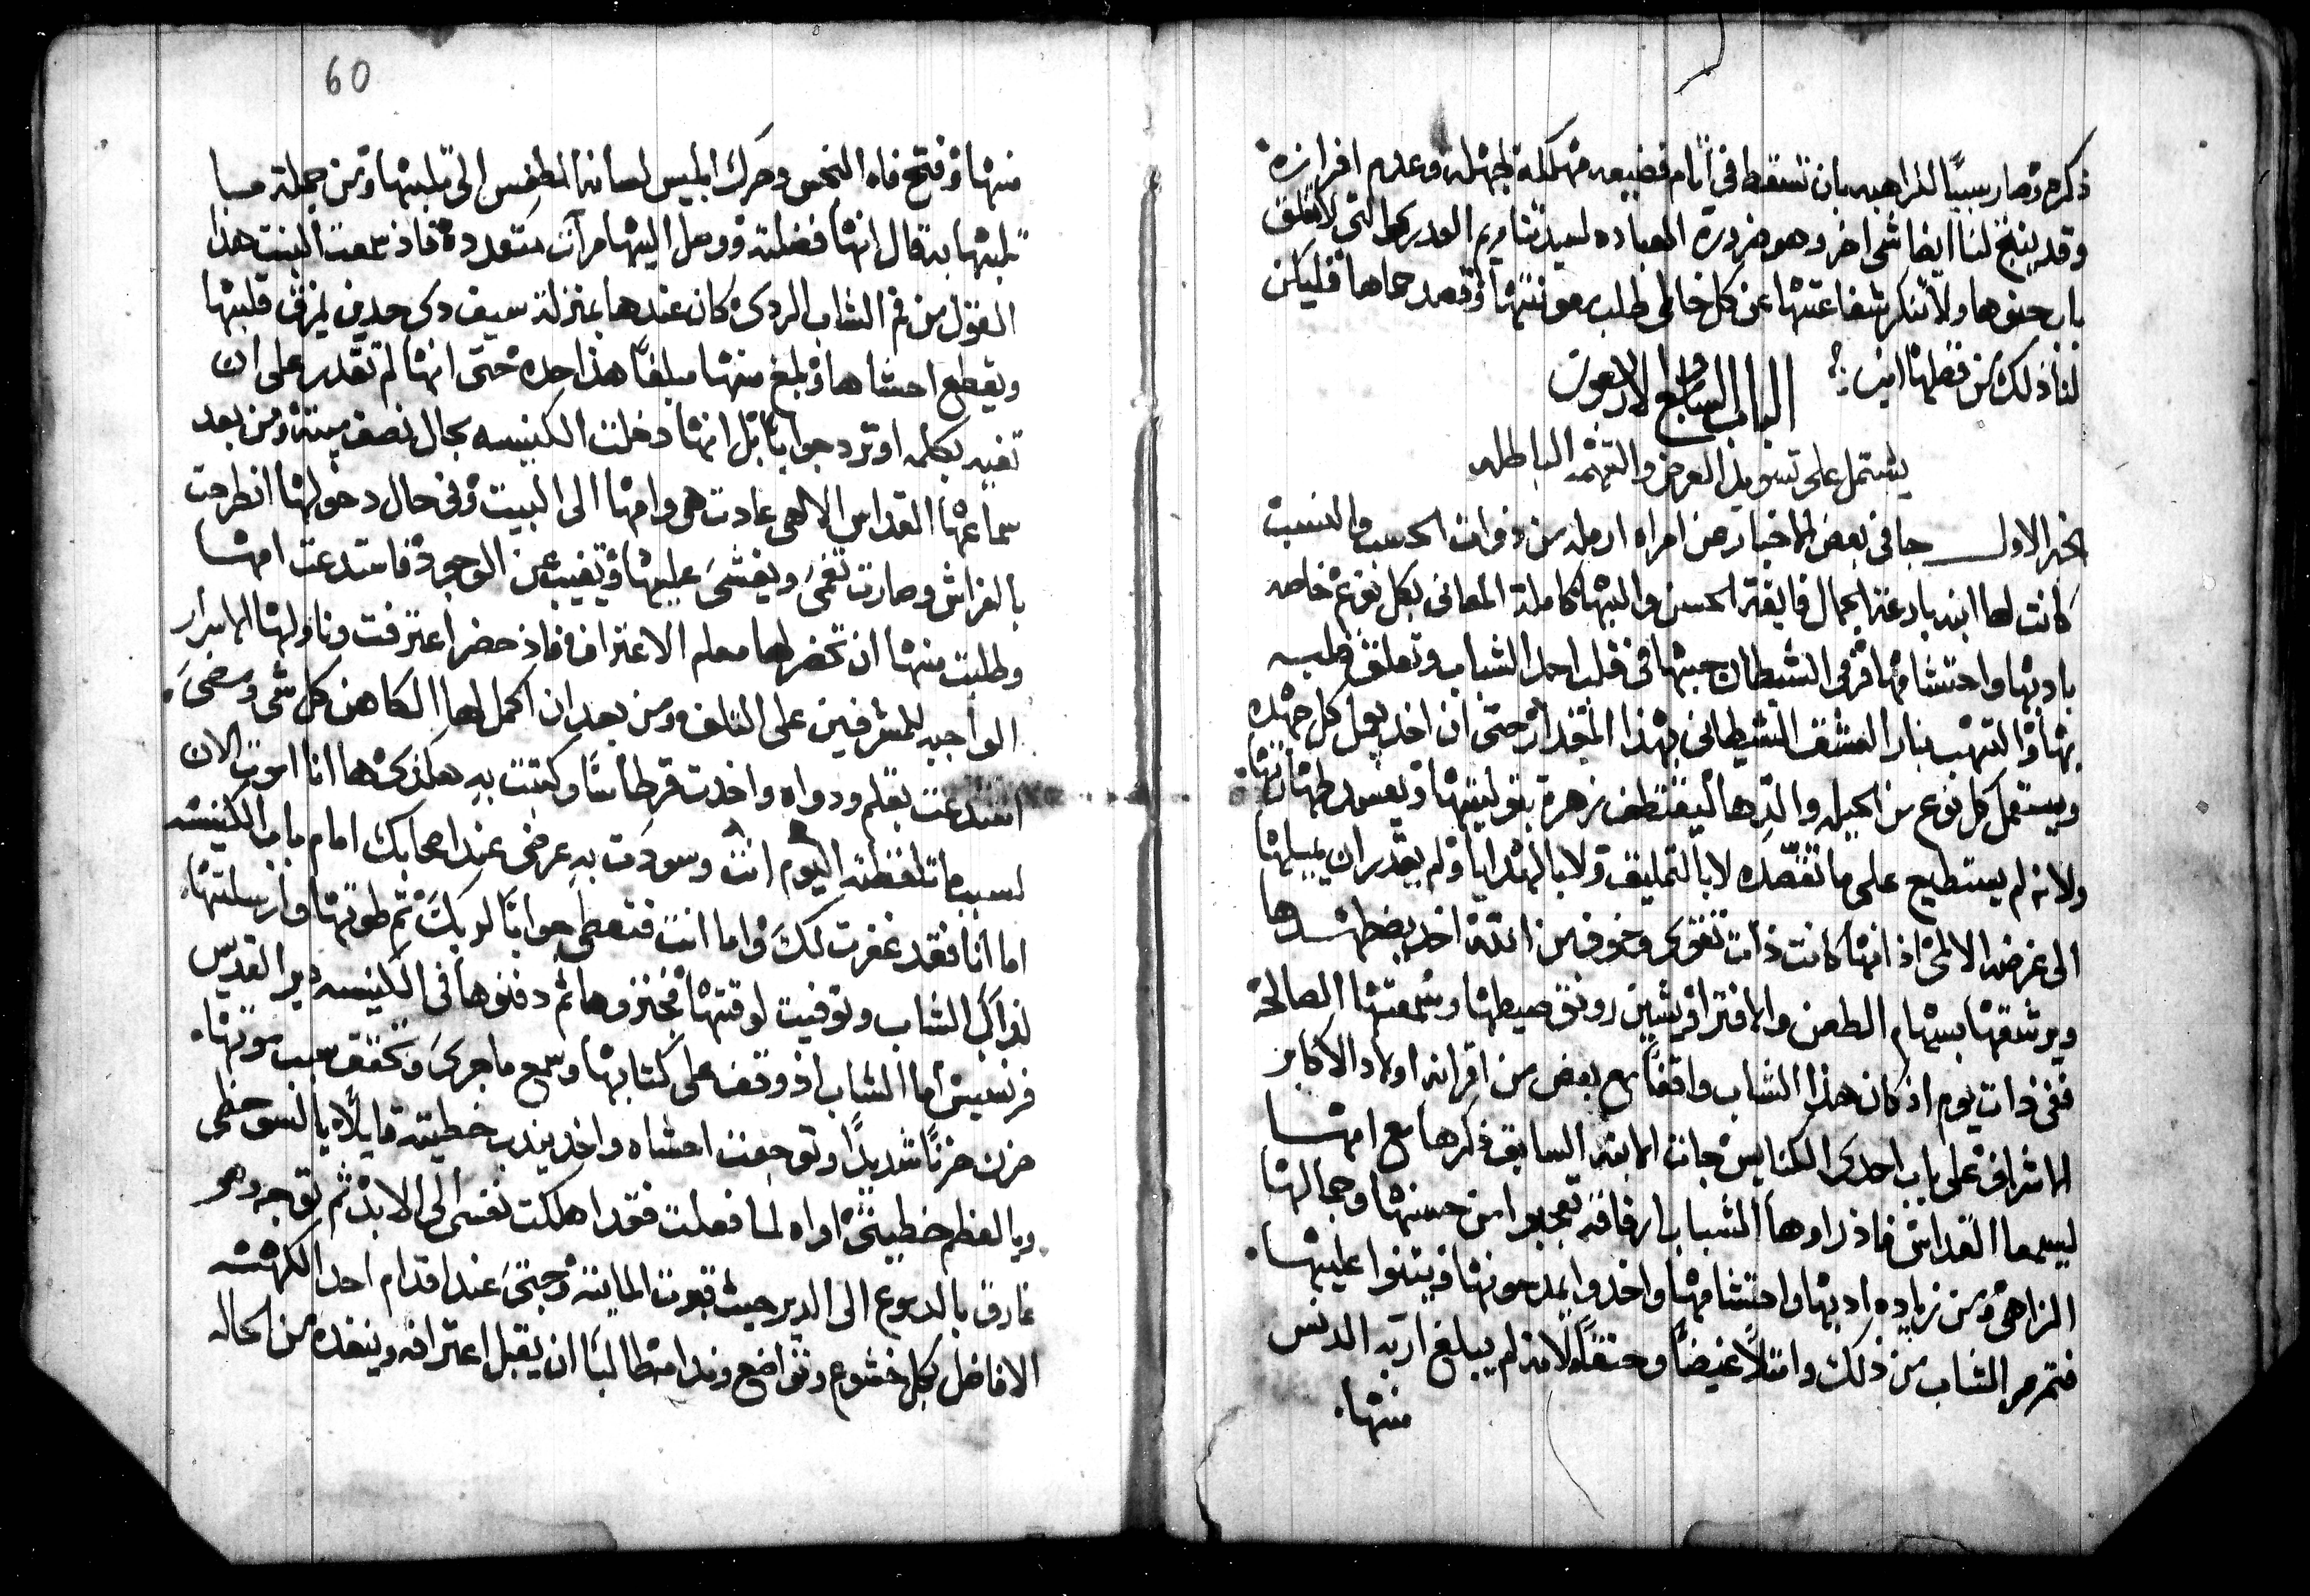 ذكره وصار سببًا للراهبه بان تسقط في اتام فضيعه مهلكة لجهله وعدم افرازه
وقد ينتج لنا ايضا شي اخر وهو ضرورة العباده لسيدتنا مريم العدرى التي لا تغلق
باب حنوها ولا تنكر شفاعتها عن كل خاطي طلب معونتها وقصد حماها فليكن
لنا ذلك من فضلها امين
الباب السابع والاربعون
يشتمل على تسويد العرض والتهمه الباطله
الخبر الاول جا في بعض الاخبار عن امراه ارمله من ذوات الحسب والنسب
كانت لها ابنه بارعة الجمال فايقة الحسن والبها كاملة المعاني بكل نوع خاصه
بادبها واحتشامها فرمى الشيطان حبها في قلب احد الشباب وتعلق قلبه
بها والتهب بنار العشق الشيطاني بهذا المقدار حتى ان اخد يعمل كل جهده
ويستعمل كل نوع من الحيل والدها ليقتطف زهرة بتوليتها ويفسد طهارتها
ولانه لم يستطيع على ما تقصده لا بالتمليق ولا بالهدايا ولم يقدر ان يميلها
الى غرضه الالمى اذ انها كانت ذات تقوى وخوف من الله اخد يضطهدها
ويرشقها بسهام الطعن والافترا فيشين رونق صيطها وسمعتها الصالحة
ففي ذات يوم اذ كان هذا الشاب واقفًا مع بعض من اقرانه اولاد الاكابر
الاشراف على باب احدى الكنايس جات الابنه السابق ذكرها مع امها
ليسمعا القداس فاذ راوها الشباب ارفاقه تعجبوا من حسنها وجمالها
الزاهي ومن زيادة ادبها واحتشامها واخدوا يمدحونها ويثنوا عليها
فتمرمر الشاب من ذلك وامتلأ غيضًا وحنقًا لانه لم يبلغ اربه الدنس
منها
60
منها وفتح فاه النجس وحرك ابليس لسانه الطفس الى ثلبها ومن جملة ما
ثلبها به قال انها فضلته ووصل اليها مرات متعدده فاذ سمعت البنت هذا
القول من فم الشاب الردي كان عندها بمنزلة سيف دي حدين يمزق قلبها
ويقطع احشاها وبلغ منها مبلغًا هذا حده حتى انها لم تقدر على ان
تفيه بكلمه او ترد جوابًا بل انها دخلت الكنيسه بحال نصف ميته ومن بعد
سماعها القداس الالهي عادت هي وامها الى البيت وفي حال دخولها انطرحت
بالفراش وصارت تغمى ويغشى عليها وتغيب عن الوجود فاستدعت امها
وطلبت منها ان تحضر لها معلم الاعتراف فاذ حضر اعترفت وناولها الاسرار
الواجبه للمشرفين على التلف ومن بعد ان اكمل لها الكاهن كل شي ومضى
استدعت بقلم ودواه واخدت قرطاسًا وكتبت به هكذى ها انا اموت الان
لسبب ما تلفظته اليوم انت وسودت به عرضي عند اصحابك امام باب الكنيسه
اما انا فقد غفرت لك واما انت فتعطي جوابًا لربك ثم طوتها وارسلتها
لذاك الشاب وتوفيت لوقتها فجنزوها ثم دفنوها في الكنيسه دير القديس
فرنسيس اما الشاب اذ وقف على كتابها وسمع ما جرى وتحقق سبب موتها
حزن حزنًا شديدًا وتوجعت احشاه واخد يندب خطيته قايلاً يا لسو حظي
ويا لعظم خطيتي اواه لما فعلت فقد اهلكت نفسي الى الابد ثم توجه وهو
غارق بالدموع الى الدير حيث قبرت الابنة وجتى عند اقدام احد الكهنه
الافاضل بكل خشوع وتواضع وندامه طالبًا ان يقبل اعترافه وينقده من الحاله